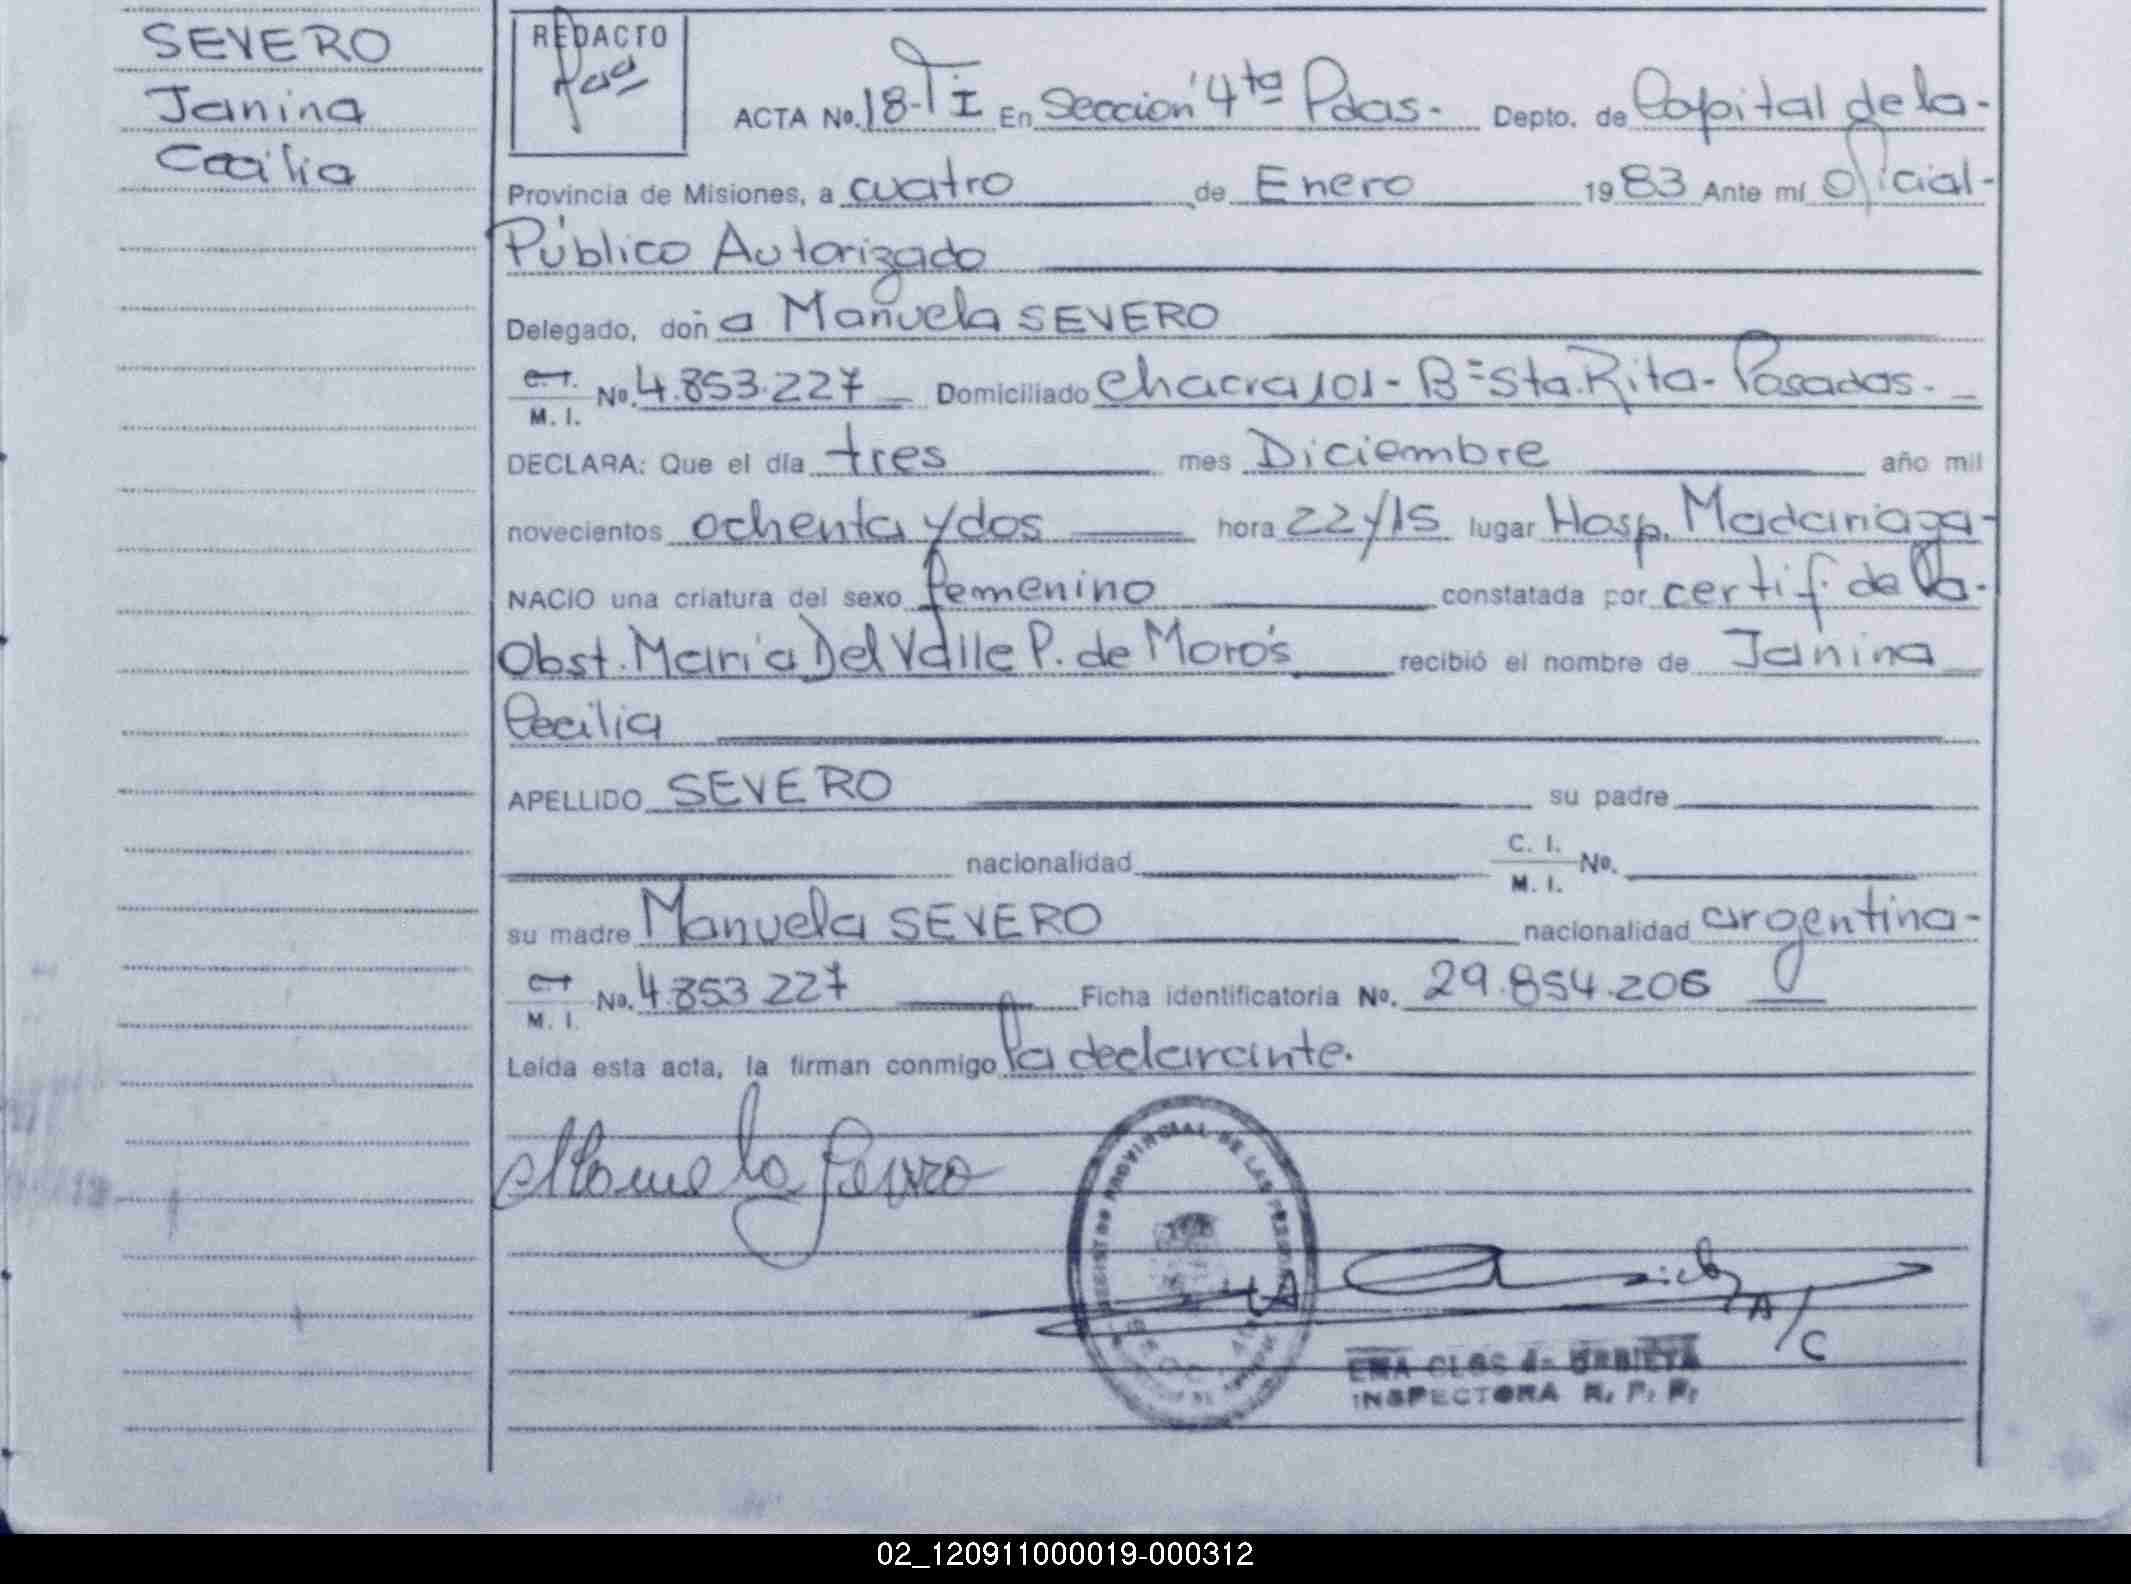 SEVERO
Janina
Cecilia
REDACTO
ACTA No. 18-TI En Seccion 4ta Pdas.- Depto. de Capital de la-
Provincia de Misiones, a cuatro de Enero 1983 Ante mí oficial-
Público Autorizado
Delegado, don a Manuela SEVERO
C.I. M. I. No. 4.853.227 Domiciliado Chacra 101 - Bº Sta. Rita - Posadas.-
DECLARA: Que el día tres mes Diciembre año mil
novecientos ochenta y dos hora 22/15 lugar Hosp. Madariaga-
NACIO una criatura del sexo femenino constatada por certif. de la-
Obst. María Del Valle P. de Moros recibió el nombre de Janina
Cecilia
APELLIDO SEVERO su padre
nacionalidad C. I. M. I. No.
su madre Manuela SEVERO nacionalidad argentina-
C.I. M. I. No. 4.853.227 Ficha identificatoria No. 29.854.206
Leída esta acta, la firman conmigo la declarante.
Manuela Severo
PROVINCIAL DE LAS
A/C
EMA CLOS de URRIETA
INSPECTORA R. P. P.
02_120911000019-000312